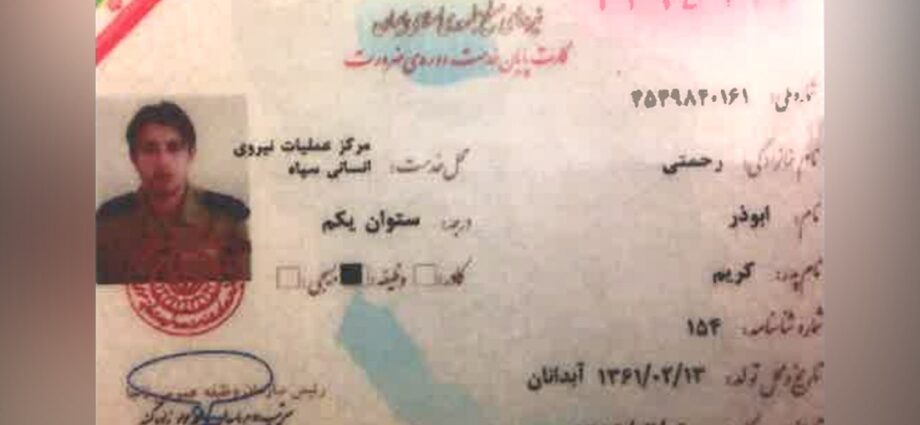 نیروهای مسلح جمهوری اسلامی ایران
کارت پایان خدمت دوره‌ی ضرورت
شماره ملی: ۴۵۴۹۸۴۰۱۶۱
نام خانوادگی: رحمتی
محل خدمت: مرکز عملیات نیروی
انسانی سپاه
نام: ابوذر
درجه: ستوان یکم
نام پدر: کریم
کادر: وظیفه: بسیجی:
شماره شناسنامه: ۱۵۴
تاریخ و محل تولد: ۱۳۶۱/۰۲/۱۳ آبدانان
رئیس سازمان وظیفه عمومی